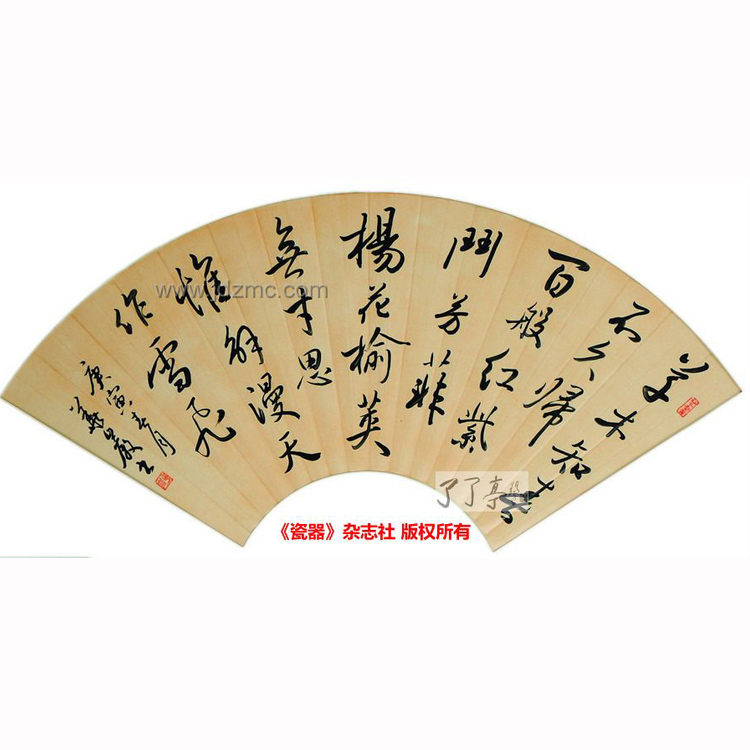 草木知春
不久歸
百般紅紫
鬥芳菲
楊花榆莢
無才思
惟解漫天
作雪飛
庚寅春月
www.jdzmc.com
了了亭
《瓷器》杂志社 版权所有